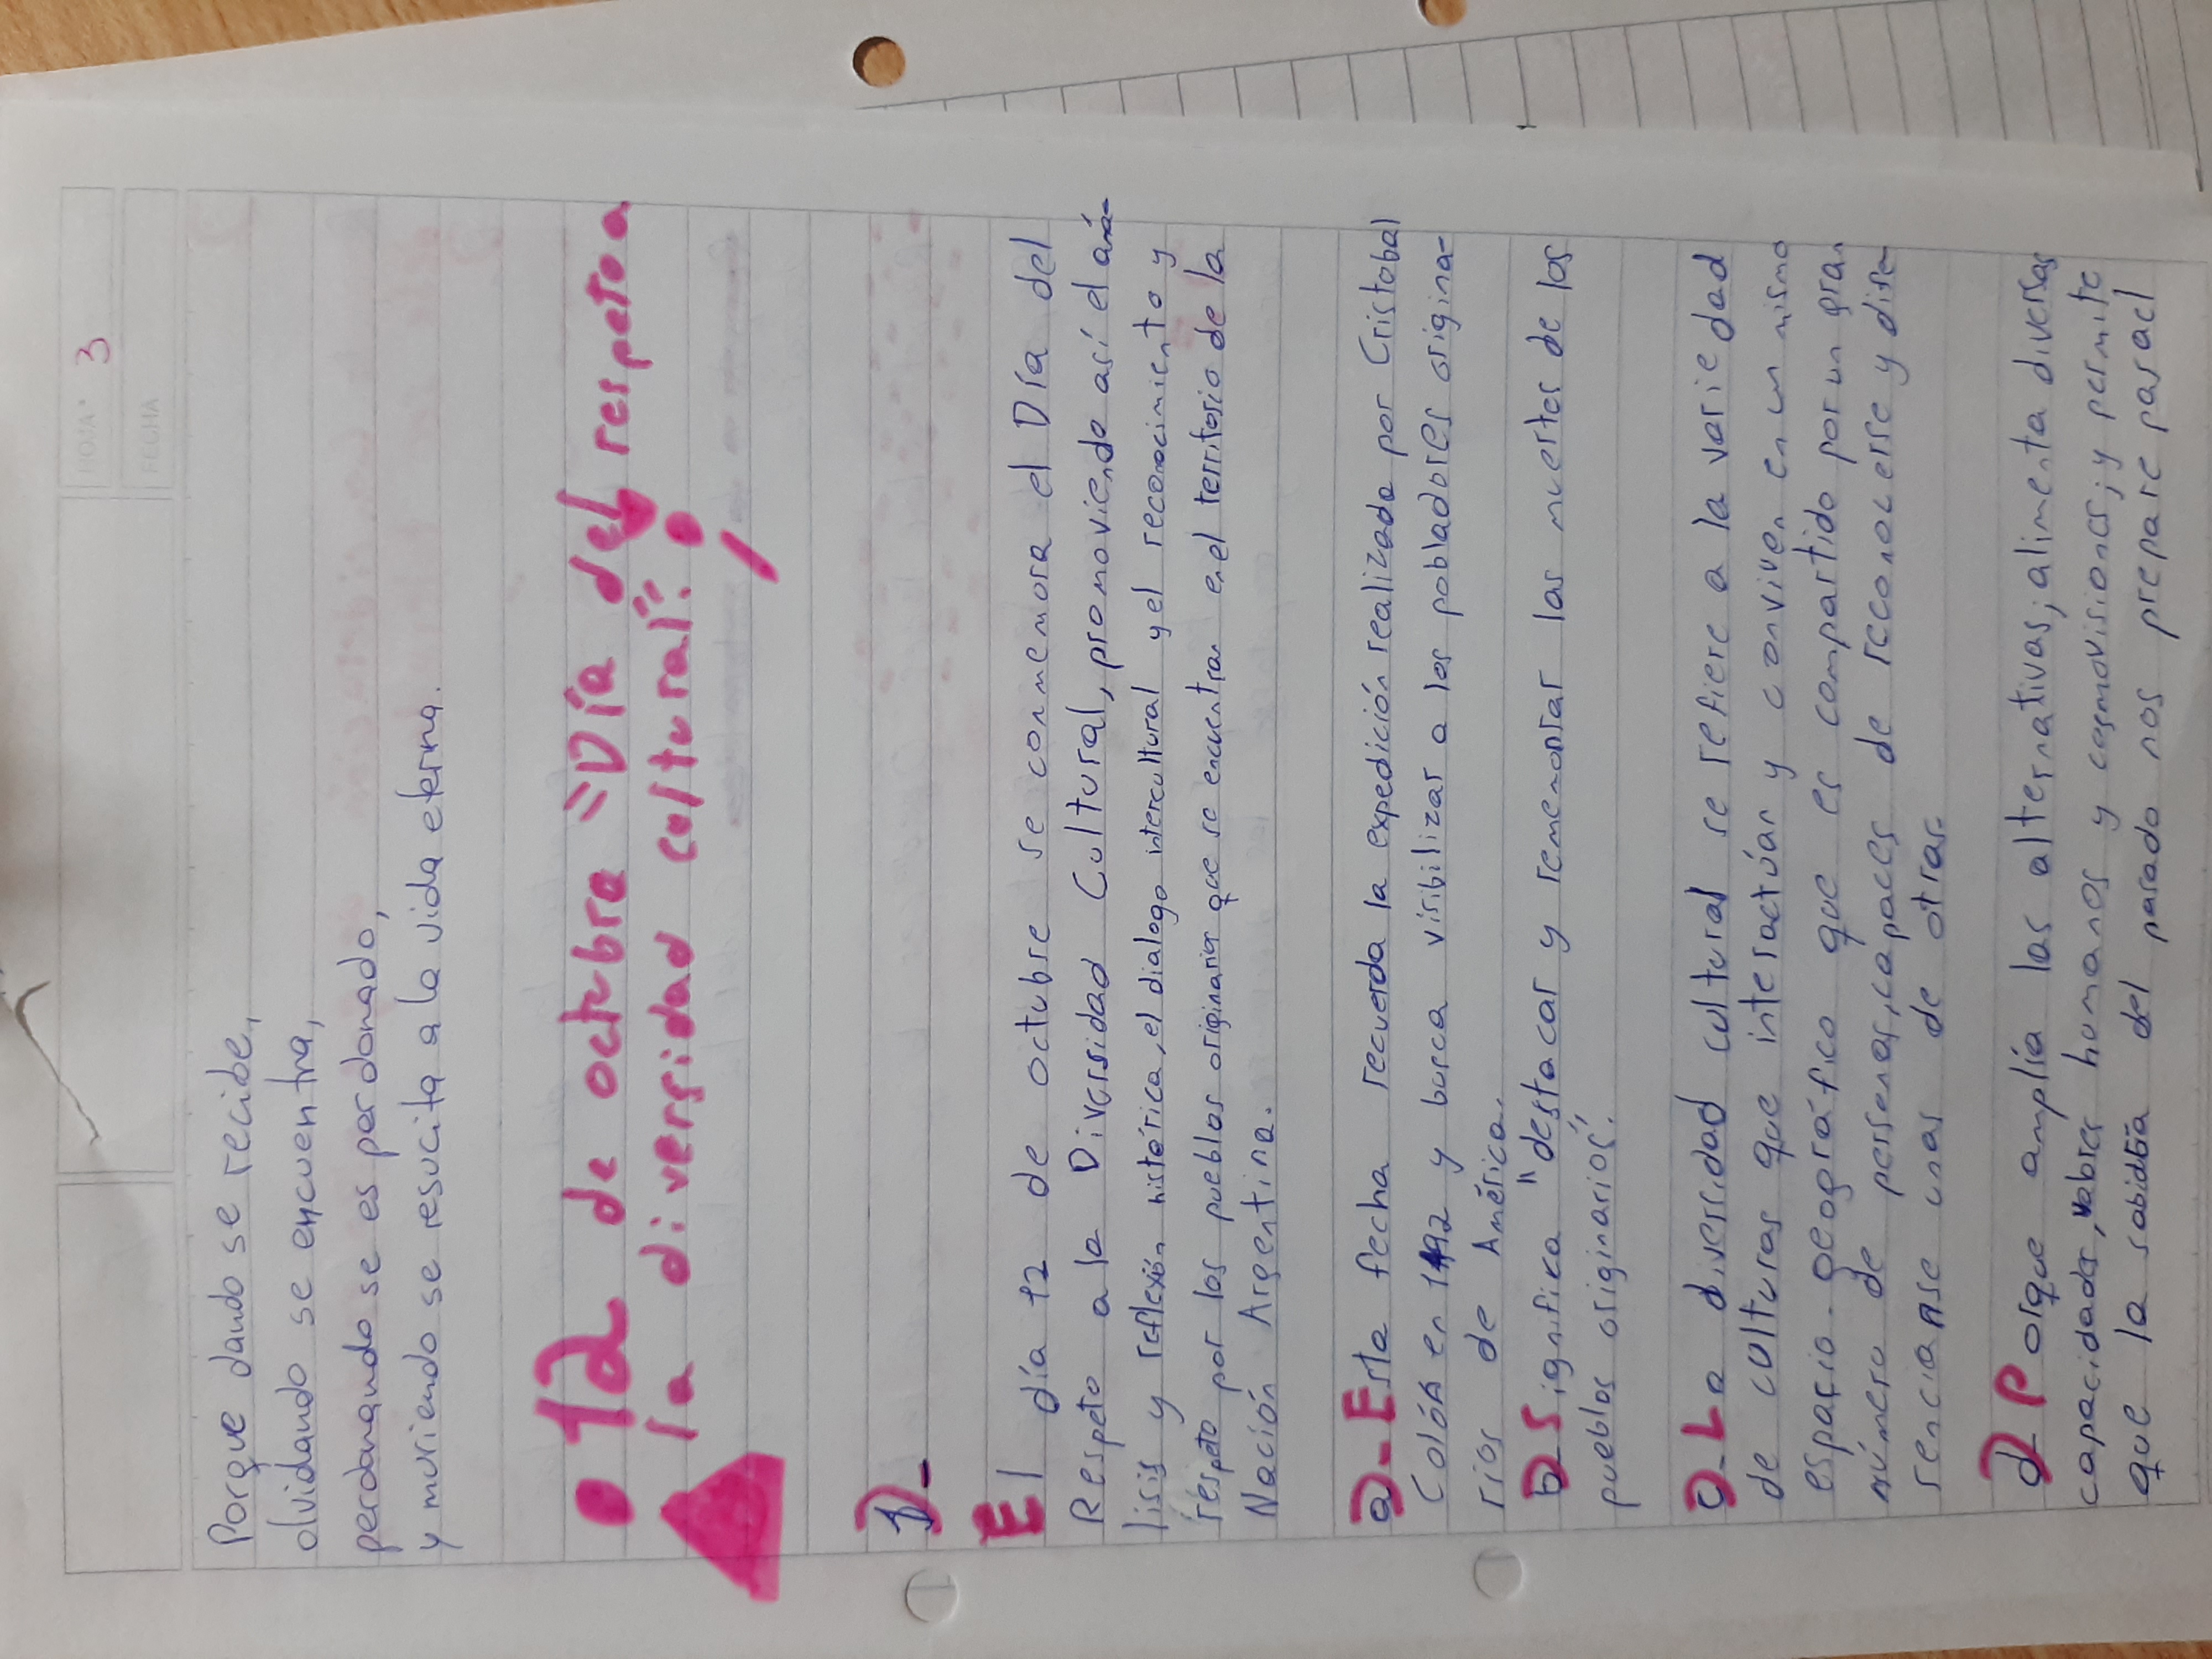 HOJA° 3
FECHA
Porque dando se recibe,
olvidando se encuentra,
perdonando se es perdonado,
y muriendo se resucita a la vida eterna.
• 12 de octubre "Día del respeto a
la diversidad cultural".
1)-
El día 12 de octubre se conmemora el Día del
Respeto a la Diversidad Cultural, promoviendo así el aná-
lisis y reflexión histórica, el dialogo intercultural y el reconocimiento y
réspeto por los pueblos originarios que se encuentran en el territorio de la
Nación Argentina.
a)-Esta fecha recuerda la expedición realizada por Cristobal
Colón en 1492 y busca visibilizar a los pobladores origina-
rios de América.
b)Significa "destacar y rememorar las muertes de los
pueblos originarios".
c)-La diversidad cultural se refiere a la variedad
de culturas que interactúan y conviven en un mismo
espacio geográfico que es compartido por un gran
número de personas, capaces de reconocerse y dife-
renciarse unas de otras.
d)Porque amplía las alternativas; alimenta diversas
capacidades, valores humanos y cosmovisiones; y permite
que la sabiduía del pasado nos prepare para el